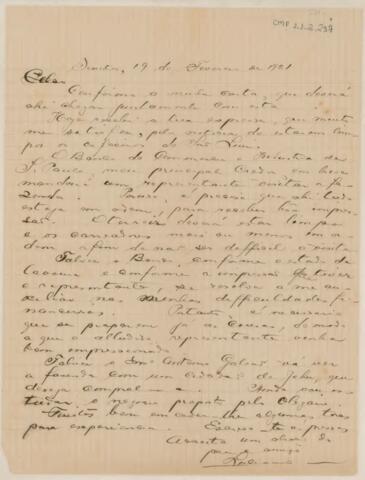 CMP 2.1.2.237
Santos, 19 de Fevereiro de 1921
Confirmo a minha carta, que deverá
ahi chegar juntamente com esta
Hoje recebi a sua expressa que muito
me satisfez, pela noticia de estarem limpos
os cafesaes de São
O Banco do Commercio e Industria de
S. Paulo, meu principal credor em breve
mandará um representante visitar a fa-
zenda. Preciso, é preciso que ahi tudo
esteja em ordem, para receber boa impres-
são. O terreiro deverá estar limpo
e os carreadores mais ou menos em or-
dem afim de não ser difficil a visita
Talvez o Banco, conforme o estado da
lavoura e conforme a impressão que tiver
o representante, se resolva a me au-
xiliar nas minhas difficuldades fi-
nanceiras. Portanto é necessario
que se preparem já as cousas, de modo
a que o alludido representante venha
bem impressionado
Talvez o Snr. Antonio vá ver
a fazenda com um cidadão de Jahu, que
deseja compral-a. Ainda
o negocio proposto pelo
bem em algumas toras
para experiencia. Escreva-te
Acceita um abraço do
amigo